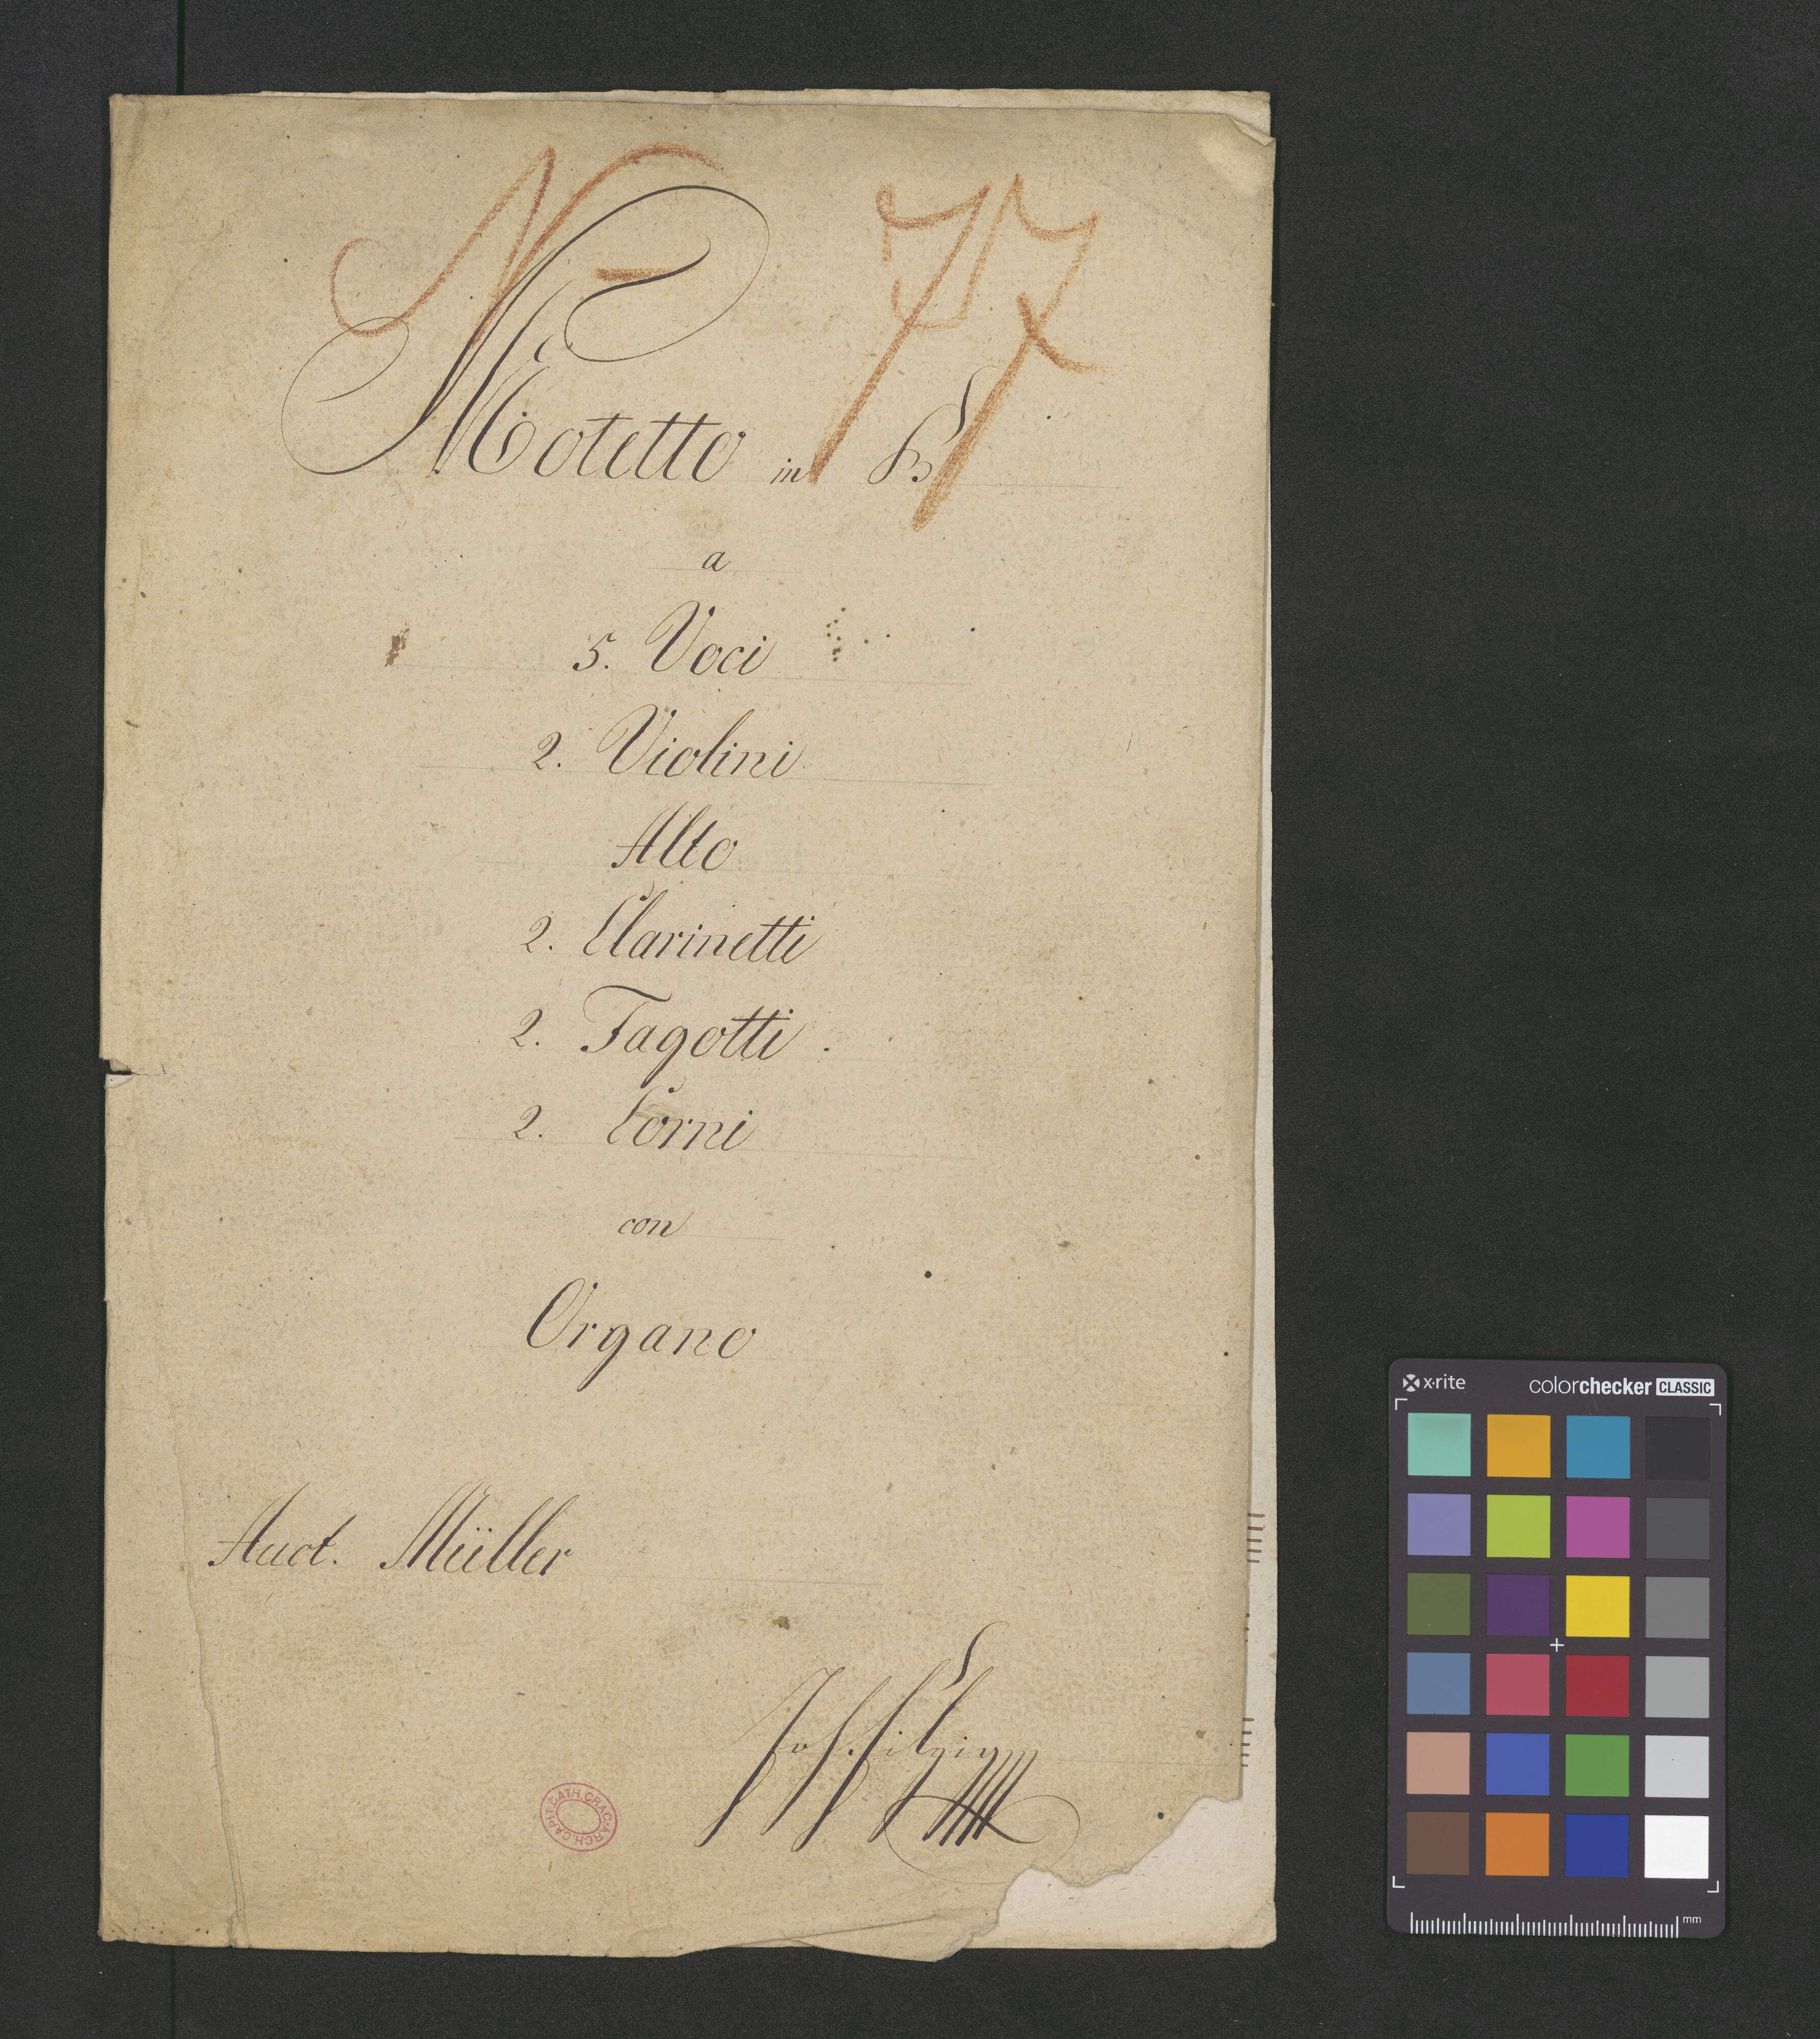 N 77
Motetto in B
a
5. Voci
2. Violini
Alto
2. Clarinetti
2. Fagotti.
2. Corni
con
Organo
Auct. Müller
ARCH. CAPIT. CATH. CRAC.
x·rite colorchecker CLASSIC
mm